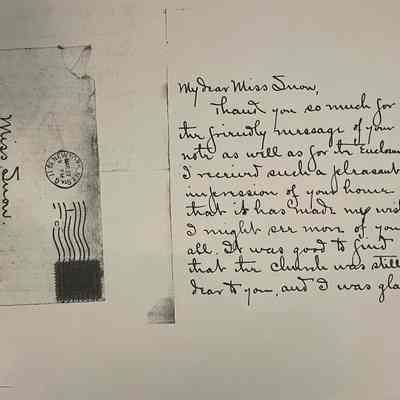 Miss Snow.
My dear Miss Snow,
Thank you so much for
the friendly message of your
note as well as for the Enclosure
I received such a pleasant
impression of your home
that it has made me wish
I might see more of you
all. It was good to find
that the church was still
dear to you, and I was gla